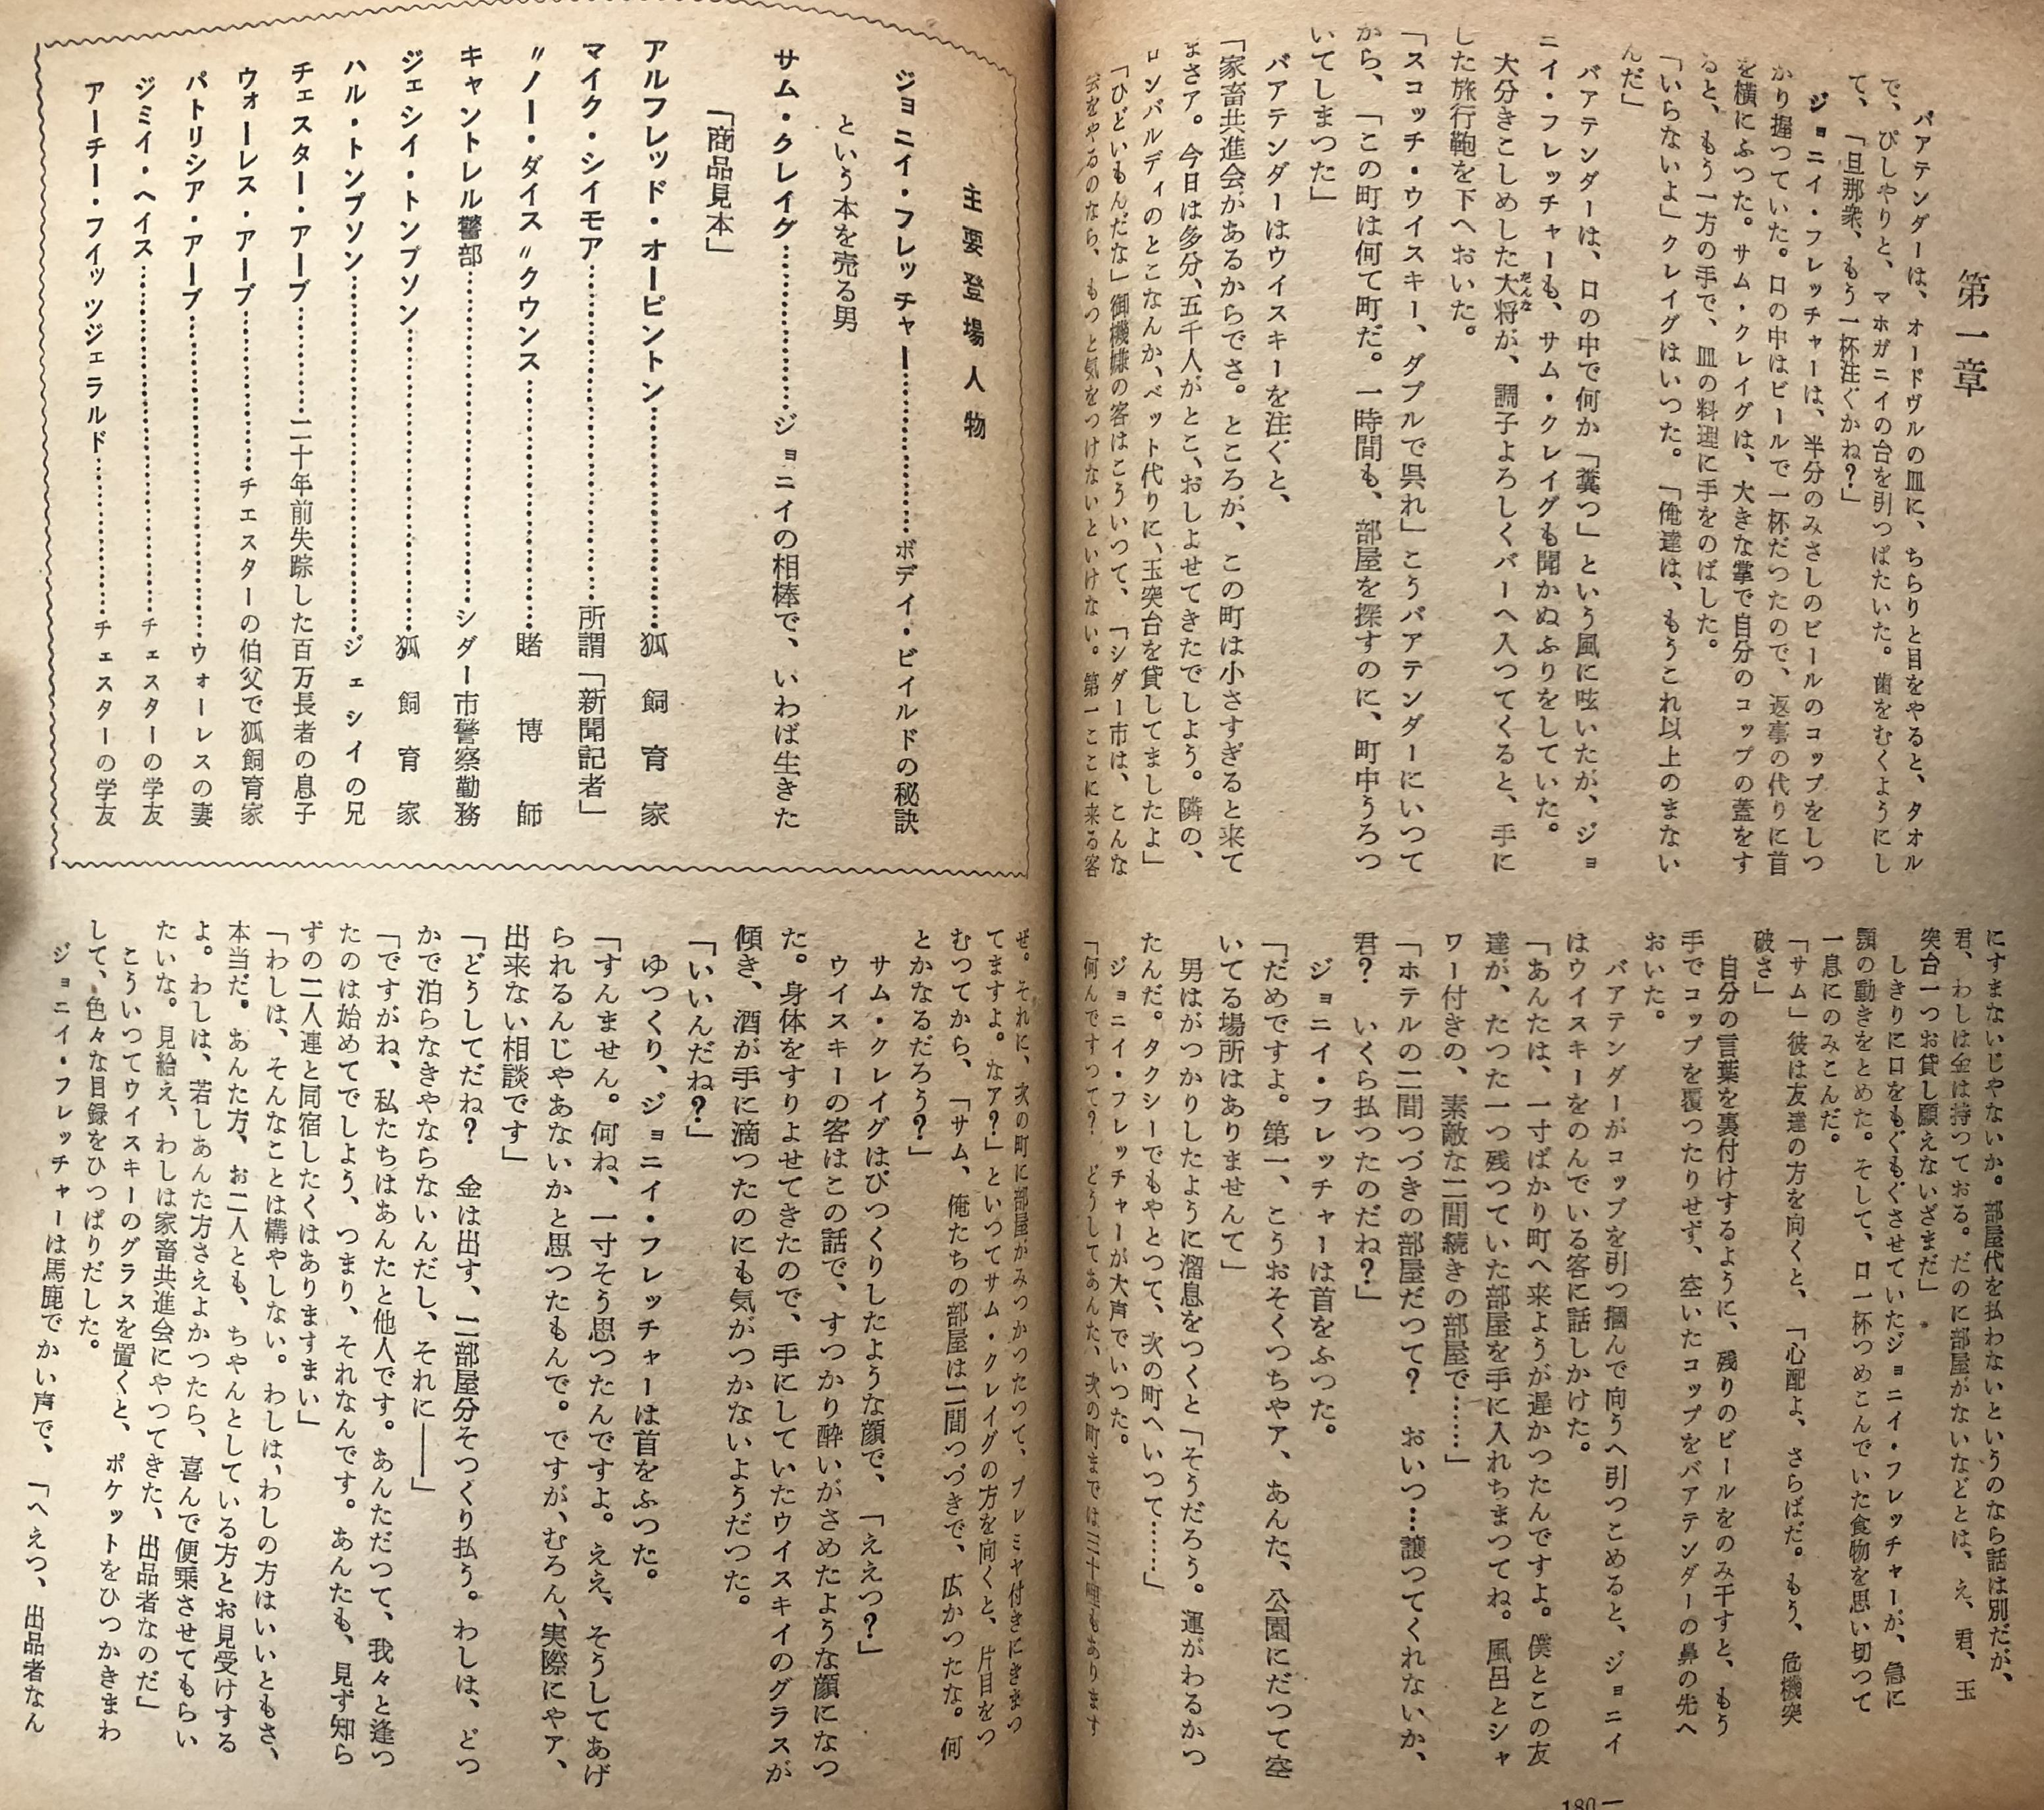 第一章
バアテンダーは、オードヴルの皿に、ちらりと目をやると、タオル
で、ぴしやりと、マホガニイの台を引つぱたいた。歯をむくようにし
て、「旦那衆、もう一杯注ぐかね？」
ジョニイ・フレッチャーは、半分のみさしのビールのコップをしつ
かり握つていた。口の中はビールで一杯だつたので、返事の代りに首
を横にふつた。サム・クレイグは、大きな掌で自分のコップの蓋をす
ると、もう一方の手で、皿の料理に手をのばした。
「いらないよ」クレイグはいつた。「俺達は、もうこれ以上のまない
んだ」
バアテンダーは、口の中で何か「糞つ」という風に呟いたが、ジョ
ニイ・フレッチャーも、サム・クレイグも聞かぬふりをしていた。
大分きこしめした大将が、調子よろしくバーへ入つてくると、手に
だんな
した旅行鞄を下へおいた。
「スコッチ・ウイスキー、ダブルで呉れ」こうバアテンダーにいつて
から、「この町は何て町だ。一時間も、部屋を探すのに、町中うろつ
いてしまつた」
バアテンダーはウイスキーを注ぐと、
「家畜共進会があるからでさ。ところが、この町は小さすぎると来て
まさア。今日は多分、五千人がとこ、おしよせてきたでしよう。隣の、
ロンバルディのとこなんか、ベット代りに、玉突台を貸してましたよ」
「ひどいもんだな」御機嫌の客はこういつて、「シダー市は、こんな
会をやるのなら、もつと気をつけないといけない。第一ここに来る客
にすまないじやないか。部屋代を払わないというのなら話は別だが、
君、わしは金は持つておる。だのに部屋がないなどとは、え、君、玉
突台一つお貸し願えないざまだ」
しきりに口をもぐもぐさせていたジョニイ・フレッチャーが、急に
顎の動きをとめた。そして、口一杯つめこんでいた食物を思い切つて
一息にのみこんだ。
「サム」彼は友達の方を向くと、「心配よ、さらばだ。もう、危機突
破さ」
自分の言葉を裏付けするように、残りのビールをのみ干すと、もう
手でコップを覆つたりせず、空いたコップをバアテンダーの鼻の先へ
おいた。
バアテンダーがコップを引つ摑んで向うへ引つこめると、ジョニイ
はウイスキーをのんでいる客に話しかけた。
「あんたは、一寸ばかり町へ来ようが遅かつたんですよ。僕とこの友
達が、たつた一つ残つていた部屋を手に入れちまつてね。風呂とシャ
ワー付きの、素敵な二間続きの部屋で……」
「ホテルの二間つづきの部屋だつて？　おいつ…譲つてくれないか、
君？　いくら払つたのだね？」
ジョニイ・フレッチャーは首をふつた。
「だめですよ。第一、こうおそくつちやア、あんた、公園にだつて空
いてる場所はありませんて」
男はがつかりしたように溜息をつくと「そうだろう。運がわるかつ
たんだ。タクシーでもやとつて、次の町へいつて……」
ジョニイ・フレッチャーが大声でいつた。
「何んですつて？　どうしてあんた、次の町までは三十哩もあります
180 —
ぜ。それに、次の町に部屋がみつかつたつて、プレミヤ付きにきまつ
てますよ。なア？」といつてサム・クレイグの方を向くと、片目をつ
むつてから、「サム、俺たちの部屋は二間つづきで、広かつたな。何
とかなるだろう？」
サム・クレイグはびつくりしたような顔で、「ええつ？」
ウイスキーの客はこの話で、すつかり酔いがさめたような顔になつ
た。身体をすりよせてきたので、手にしていたウイスキイのグラスが
傾き、酒が手に滴つたのにも気がつかないようだつた。
「いいんだね？」
ゆつくり、ジョニイ・フレッチャーは首をふつた。
「すんません。何ね、一寸そう思つたんですよ。ええ、そうしてあげ
られるんじやあないかと思つたもんで。ですが、むろん、実際にやア、
出来ない相談です」
「どうしてだね？　金は出す、二部屋分そつくり払う。わしは、どつ
かで泊らなきやならないんだし、それに――」
「ですがね、私たちはあんたと他人です。あんただつて、我々と逢つ
たのは始めてでしよう、つまり、それなんです。あんたも、見ず知ら
ずの二人連と同宿したくはありますまい」
「わしは、そんなことは構やしない。わしは、わしの方はいいともさ、
本当だ。あんた方、お二人とも、ちやんとしている方とお見受けする
よ。わしは、若しあんた方さえよかつたら、喜んで便乗させてもらい
たいな。見給え、わしは家畜共進会にやつてきた、出品者なのだ」
こういつてウイスキーのグラスを置くと、ポケットをひつかきまわ
して、色々な目録をひつぱりだした。
ジョニイ・フレッチャーは馬鹿でかい声で、「へえつ、出品者なん
主要登場人物
ジョニイ・フレッチャー……………ボディ・ビイルドの秘訣
という本を売る男
サム・クレイグ……………ジョニイの相棒で、いわば生きた
「商品見本」
アルフレッド・オーピントン……………狐飼育家
マイク・シイモア……………所謂「新聞記者」
〃ノー・ダイス〃クウンス……………賭博師
キャントレル警部……………シダー市警察勤務
ジェシイ・トンプソン……………狐飼育家
ハル・トンプソン……………ジェシイの兄
チェスター・アープ……………二十年前失踪した百万長者の息子
ウォーレス・アープ……………チェスターの伯父で狐飼育家
パトリシア・アープ……………ウォーレスの妻
ジミイ・ヘイス……………チェスターの学友
アーチー・フイッツジェラルド……………チェスターの学友